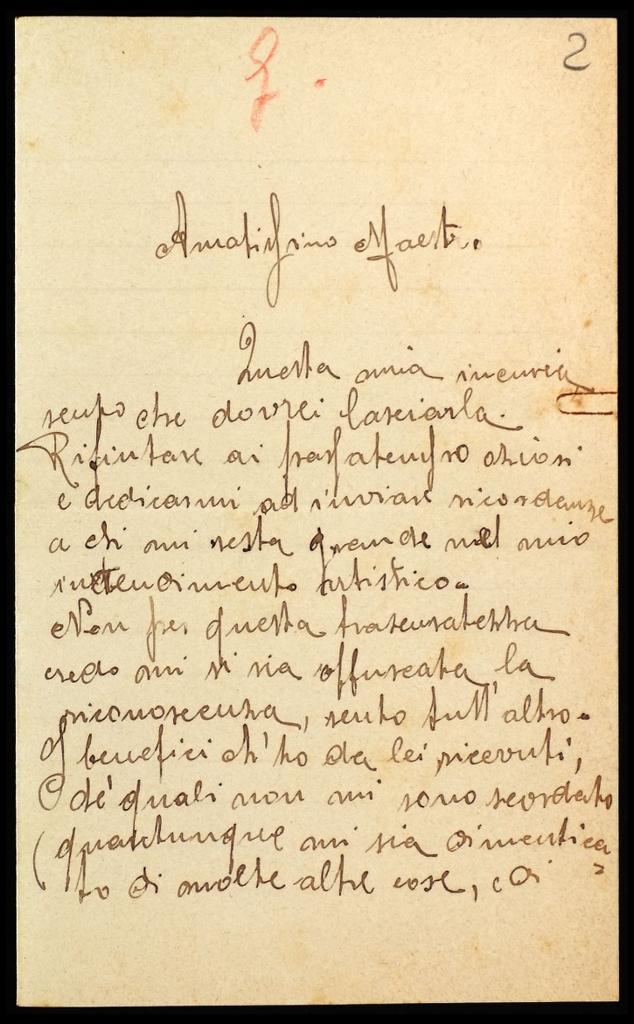 2
Amatissimo Maest.
Questa mia incuria
sento che dovrei lasciarla.
Rifiutare ai passatempo oziosi
e dedicarmi ad inviare ricordanze
a chi mi resta grande nel mio
intendimento artistico.
Non per questa trascuratezza
credo mi si sia offuscata la
riconoscenza, sento tutt'altro.
I benefici ch'ho da lei ricevuti,
de' quali non mi sono scordato
(quantunque mi sia dimentica=
to di molte altre cose, e di